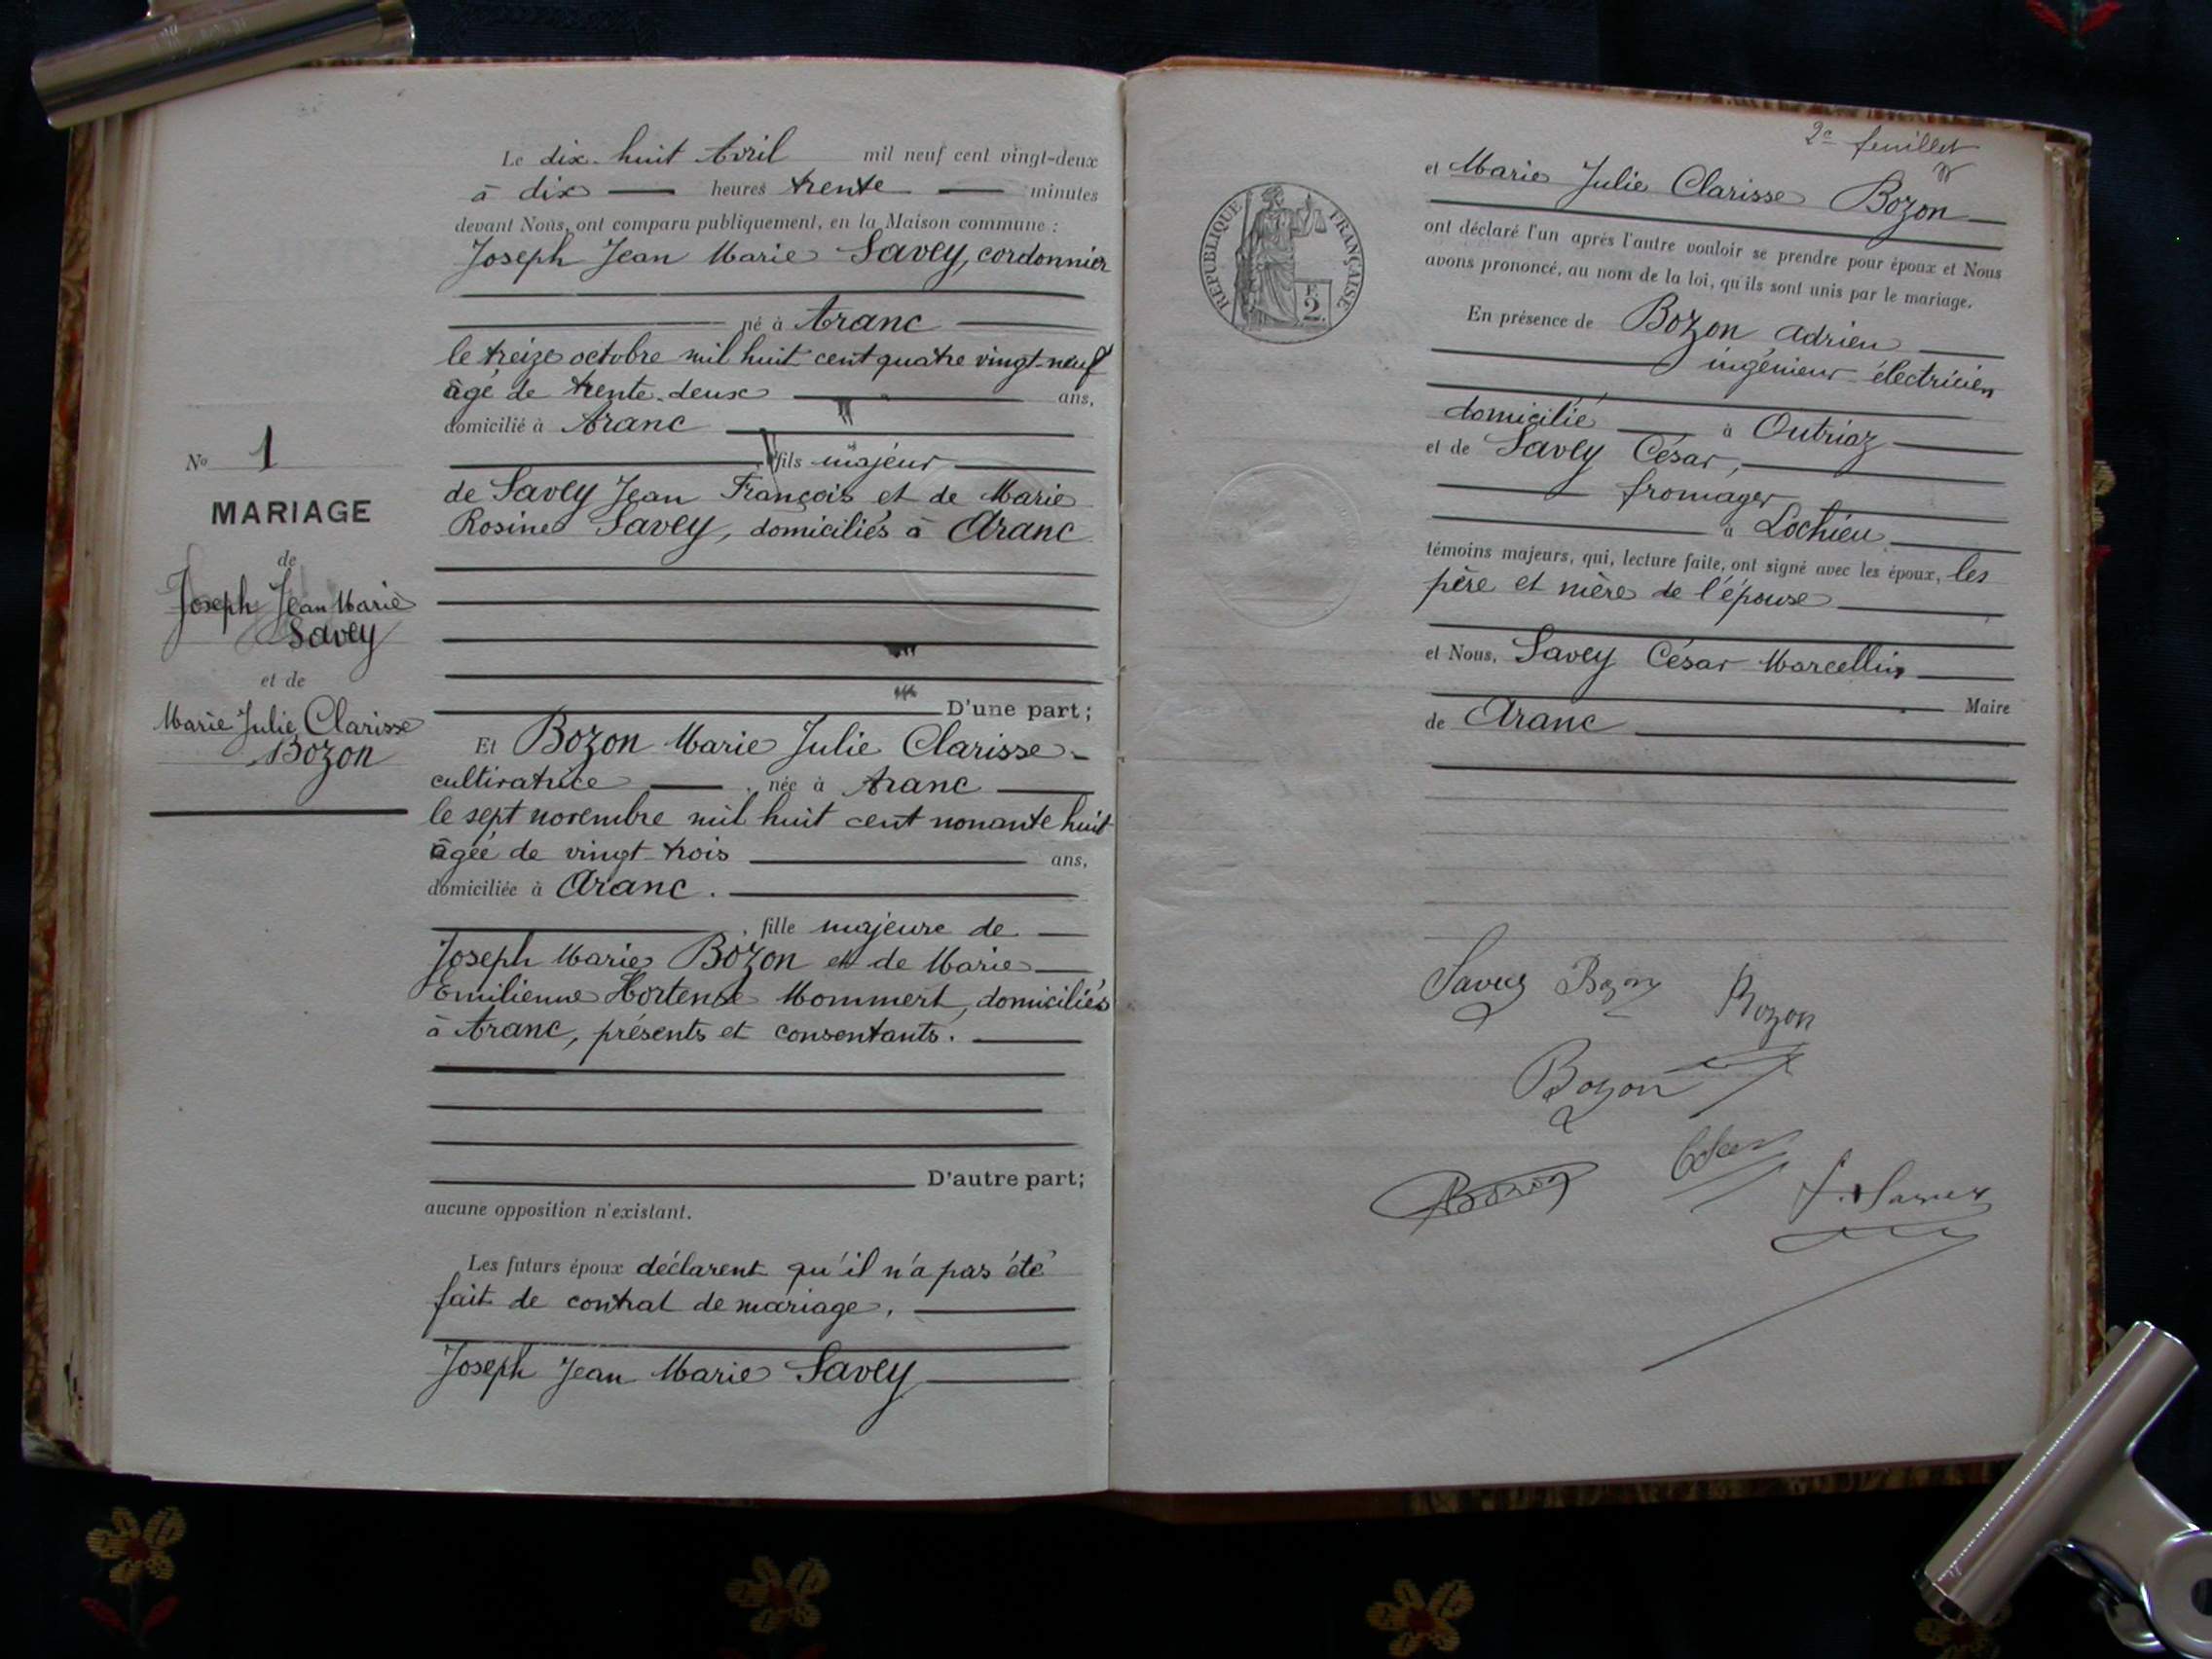 Le dix-huit Avril mil neuf cent vingt-deux
à dix heures trente minutes
devant Nous, ont comparu publiquement, en la Maison commune :
Joseph Jean Marie Savey, cordonnier
né à Aranc
le treize octobre mil huit cent quatre vingt-neuf
âgé de trente-deux ans,
domicilié à Aranc
fils majeur
de Savey Jean François et de Marie
Rosine Savey, domiciliés à Aranc
D'une part;
Et Bozon Marie Julie Clarisse
cultivatrice née à Aranc
le sept novembre mil huit cent nonante huit
âgée de vingt-trois ans,
domiciliée à Aranc.
fille majeure de
Joseph Marie Bozon et de Marie
Emilienne Hortense Mommert, domiciliés
à Aranc, présents et consentants.
D'autre part;
aucune opposition n'existant.
Les futurs époux déclarent qu'il n'a pas été
fait de contrat de mariage.
Joseph Jean Marie Savey
No 1
MARIAGE
de
Joseph Jean Marie
Savey
et de
Marie Julie Clarisse
Bozon
2e feuillet
RÉPUBLIQUE FRANÇAISE
F.
2.
et Marie Julie Clarisse Bozon
ont déclaré l'un après l'autre vouloir se prendre pour époux et Nous
avons prononcé, au nom de la loi, qu'ils sont unis par le mariage.
En présence de Bozon Adrien
ingénieur-électricien
domicilié à Outriaz
et de Savey César,
fromager
à Lochieu
témoins majeurs, qui, lecture faite, ont signé avec les époux, les
père et mère de l'épouse
et Nous, Savey César Marcellin
Maire
de Aranc
Savey Bozon Bozon
Bozon
Bozon